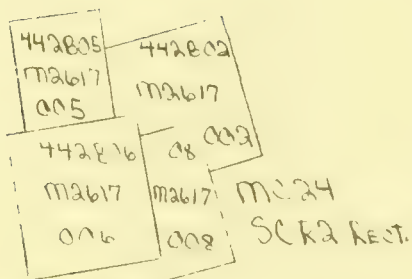 442B05
M2617
005
442B02
M2617
002
442B06
M2617
006
08
M2617
008
MC24
SCR2 Rect.